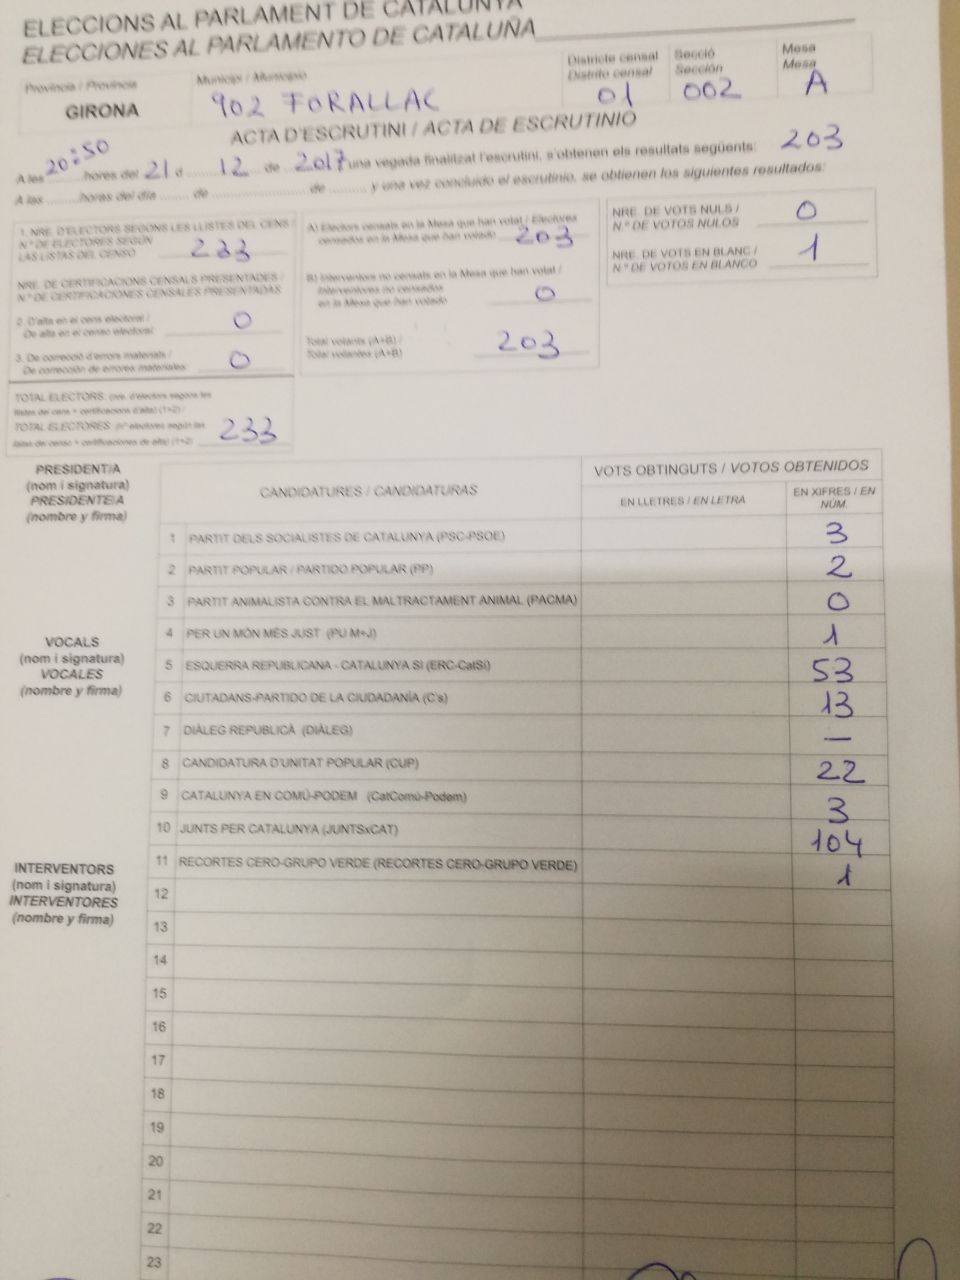 ELECCIONS AL PARLAMENT DE CATALUNYA
ELECCIONES AL PARLAMENTO DE CATALUÑA
Província / Provincia
GIRONA
Municipi / Municipio
902 FORALLAC
Districte censal
Distrito censal
01
Secció
Sección
002
Mesa
Mesa
A
ACTA D'ESCRUTINI / ACTA DE ESCRUTINIO
A les 20:50 hores del 21 d 12 de 2017 una vegada finalitzat l'escrutini, s'obtenen els resultats següents: 203
A las ......... horas del día ........ de ........................ de ......... y una vez concluido el escrutinio, se obtienen los siguientes resultados:
1. NRE. D'ELECTORS SEGONS LES LLISTES DEL CENS /
N.º DE ELECTORES SEGÚN
LAS LISTAS DEL CENSO 233
NRE. DE CERTIFICACIONS CENSALS PRESENTADES /
N.º DE CERTIFICACIONES CENSALES PRESENTADAS
2. D'alta en el cens electoral /
De alta en el censo electoral 0
3. De correcció d'errors materials /
De corrección de errores materiales 0
TOTAL ELECTORS: (nre. d'electors segons les
llistes del cens + certificacions d'alta) (1+2) /
TOTAL ELECTORES: (nº electores según las
listas del censo + certificaciones de alta) (1+2) 233
A) Electors censats en la Mesa que han votat / Electores
censados en la Mesa que han votado 203
B) Interventors no censats en la Mesa que han votat /
Interventores no censados
en la Mesa que han votado 0
Total votants (A+B) /
Total votantes (A+B) 203
NRE. DE VOTS NULS /
N.º DE VOTOS NULOS 0
NRE. DE VOTS EN BLANC /
N.º DE VOTOS EN BLANCO 1
PRESIDENT/A
(nom i signatura)
PRESIDENTE/A
(nombre y firma)
VOCALS
(nom i signatura)
VOCALES
(nombre y firma)
INTERVENTORS
(nom i signatura)
INTERVENTORES
(nombre y firma)
CANDIDATURES / CANDIDATURAS
VOTS OBTINGUTS / VOTOS OBTENIDOS
EN LLETRES / EN LETRA
EN XIFRES / EN
NÚM.
1 PARTIT DELS SOCIALISTES DE CATALUNYA (PSC-PSOE) 3
2 PARTIT POPULAR / PARTIDO POPULAR (PP) 2
3 PARTIT ANIMALISTA CONTRA EL MALTRACTAMENT ANIMAL (PACMA) 0
4 PER UN MÓN MÉS JUST (PU M+J) 1
5 ESQUERRA REPUBLICANA - CATALUNYA SI (ERC-CatSí) 53
6 CIUTADANS-PARTIDO DE LA CIUDADANÍA (C's) 13
7 DIÀLEG REPUBLICÀ (DIÀLEG) —
8 CANDIDATURA D'UNITAT POPULAR (CUP) 22
9 CATALUNYA EN COMÚ-PODEM (CatComú-Podem) 3
10 JUNTS PER CATALUNYA (JUNTSxCAT) 104
11 RECORTES CERO-GRUPO VERDE (RECORTES CERO-GRUPO VERDE) 1
12
13
14
15
16
17
18
19
20
21
22
23